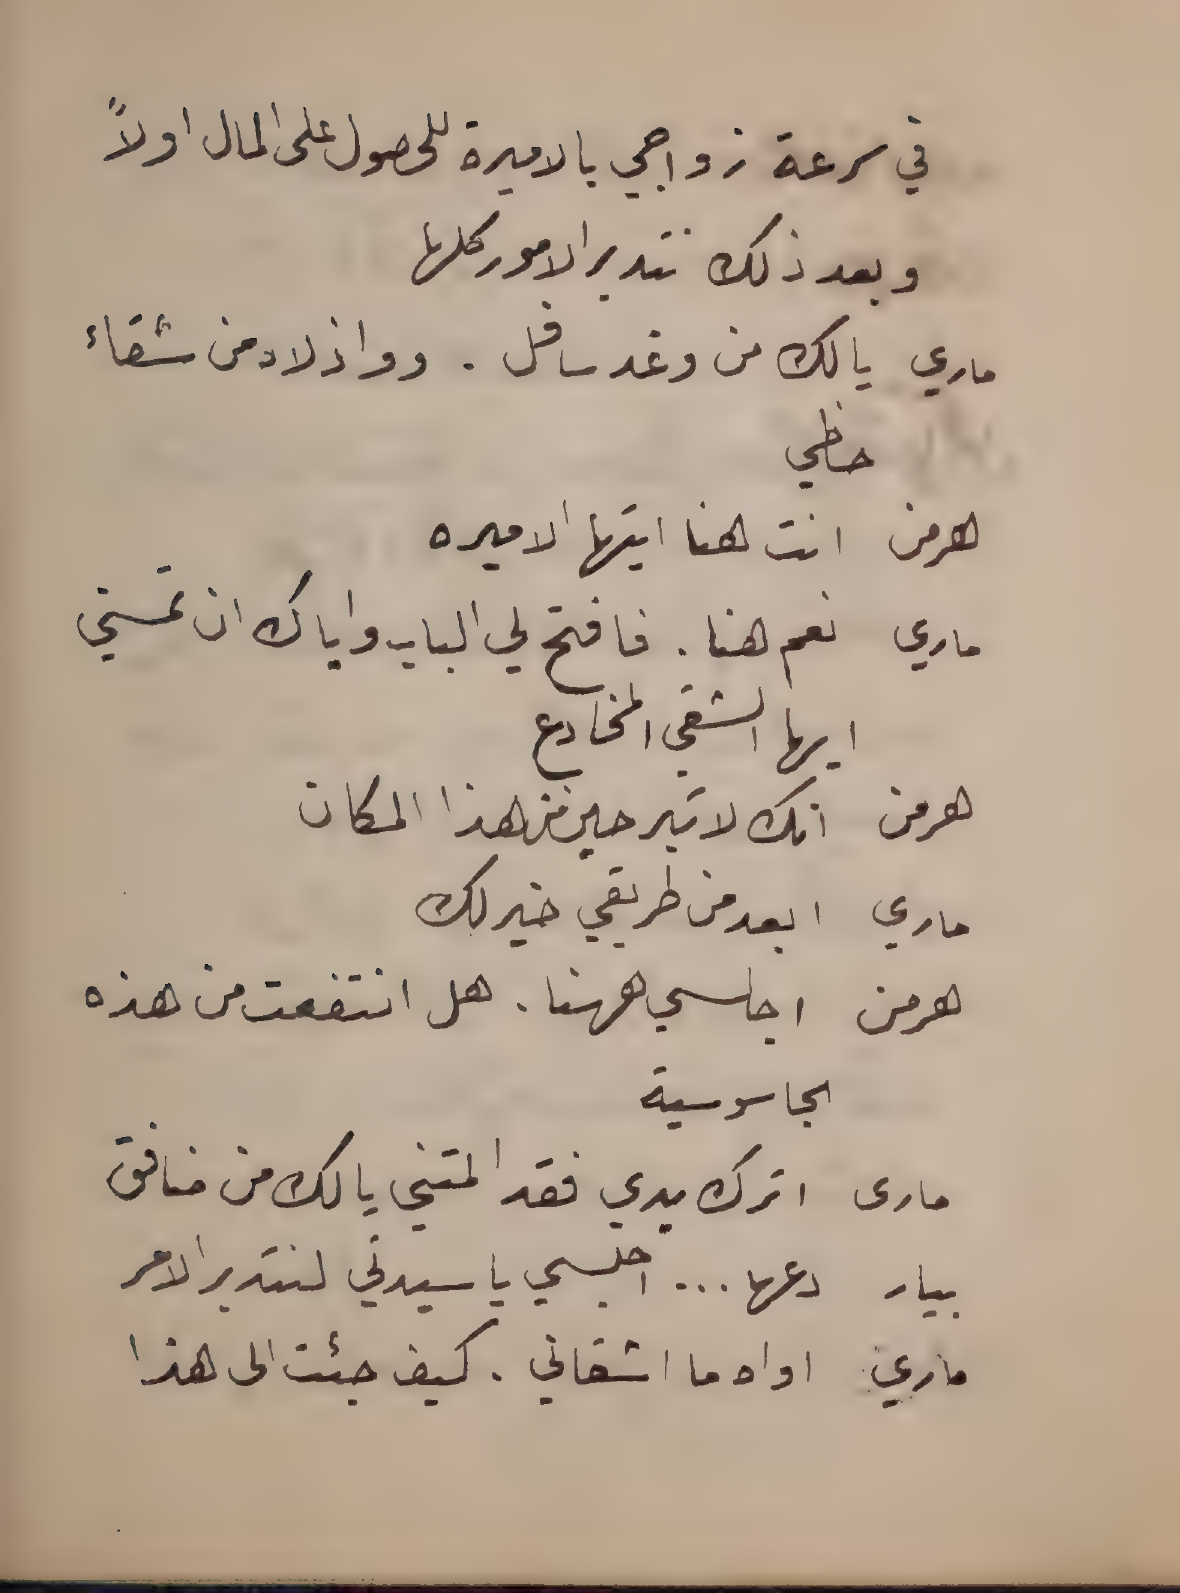 في سرعة زواجي بالاميرة للحصول على المال اولاً
وبعد ذلك نتدبر الامور كلها
ماري يالك من وغد سافل . وواذلاه من شقاء
حظي
هرمن انت هنا ايتها الاميره
ماري نعم هنا . فافتح لي الباب واياك ان تمسني
ايها الشقي المخادع
هرمن انك لا تبرحين من هذا المكان
ماري ابعد من طريقي خير لك
هرمن اجلسي ههنا . هل انتفعت من هذه
الجاسوسية
مارى اترك يدي فقد المتني يالك من منافق
بيار دعها ... اجلسي يا سيدتي لنتدبر الامر
ماري اواه ما اشقاني . كيف جئت الى هذا